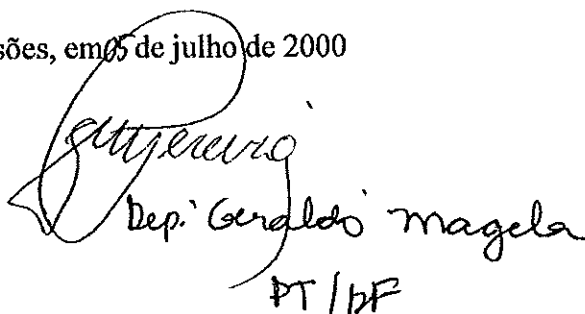 sões, em 05 de julho de 2000
Dep. Geraldo Magela
PT/DF